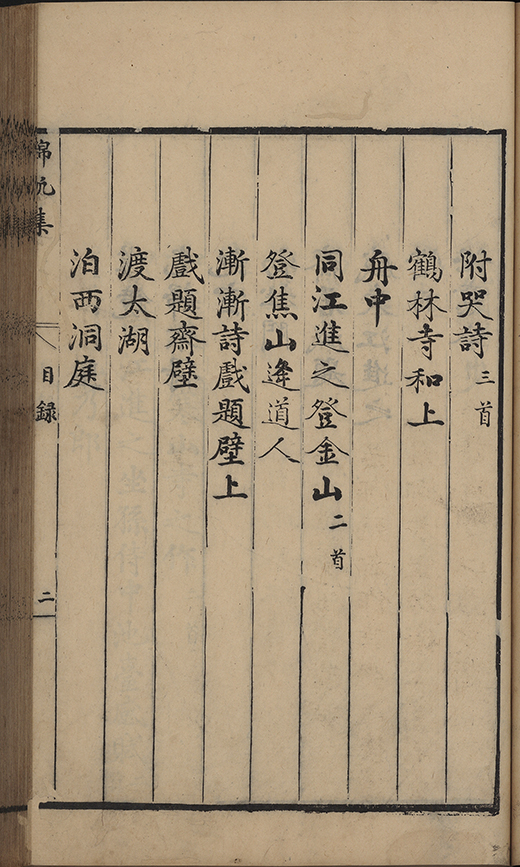 附哭詩三首
鶴林寺和上
舟中
同江進之登金山二首
登焦山逢道人
漸漸詩戲題壁上
戲題齋壁
渡太湖
泊西洞庭
錦帆集 目錄 二